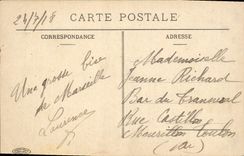 24/7/18
CARTE POSTALE
CORRESPONDANCE
ADRESSE
Une grosse bise
de Marseille
Laurence
Mademoiselle
Jeanne Richard
Bar du Tramway
Rue Castillon
Toulon
(Var)